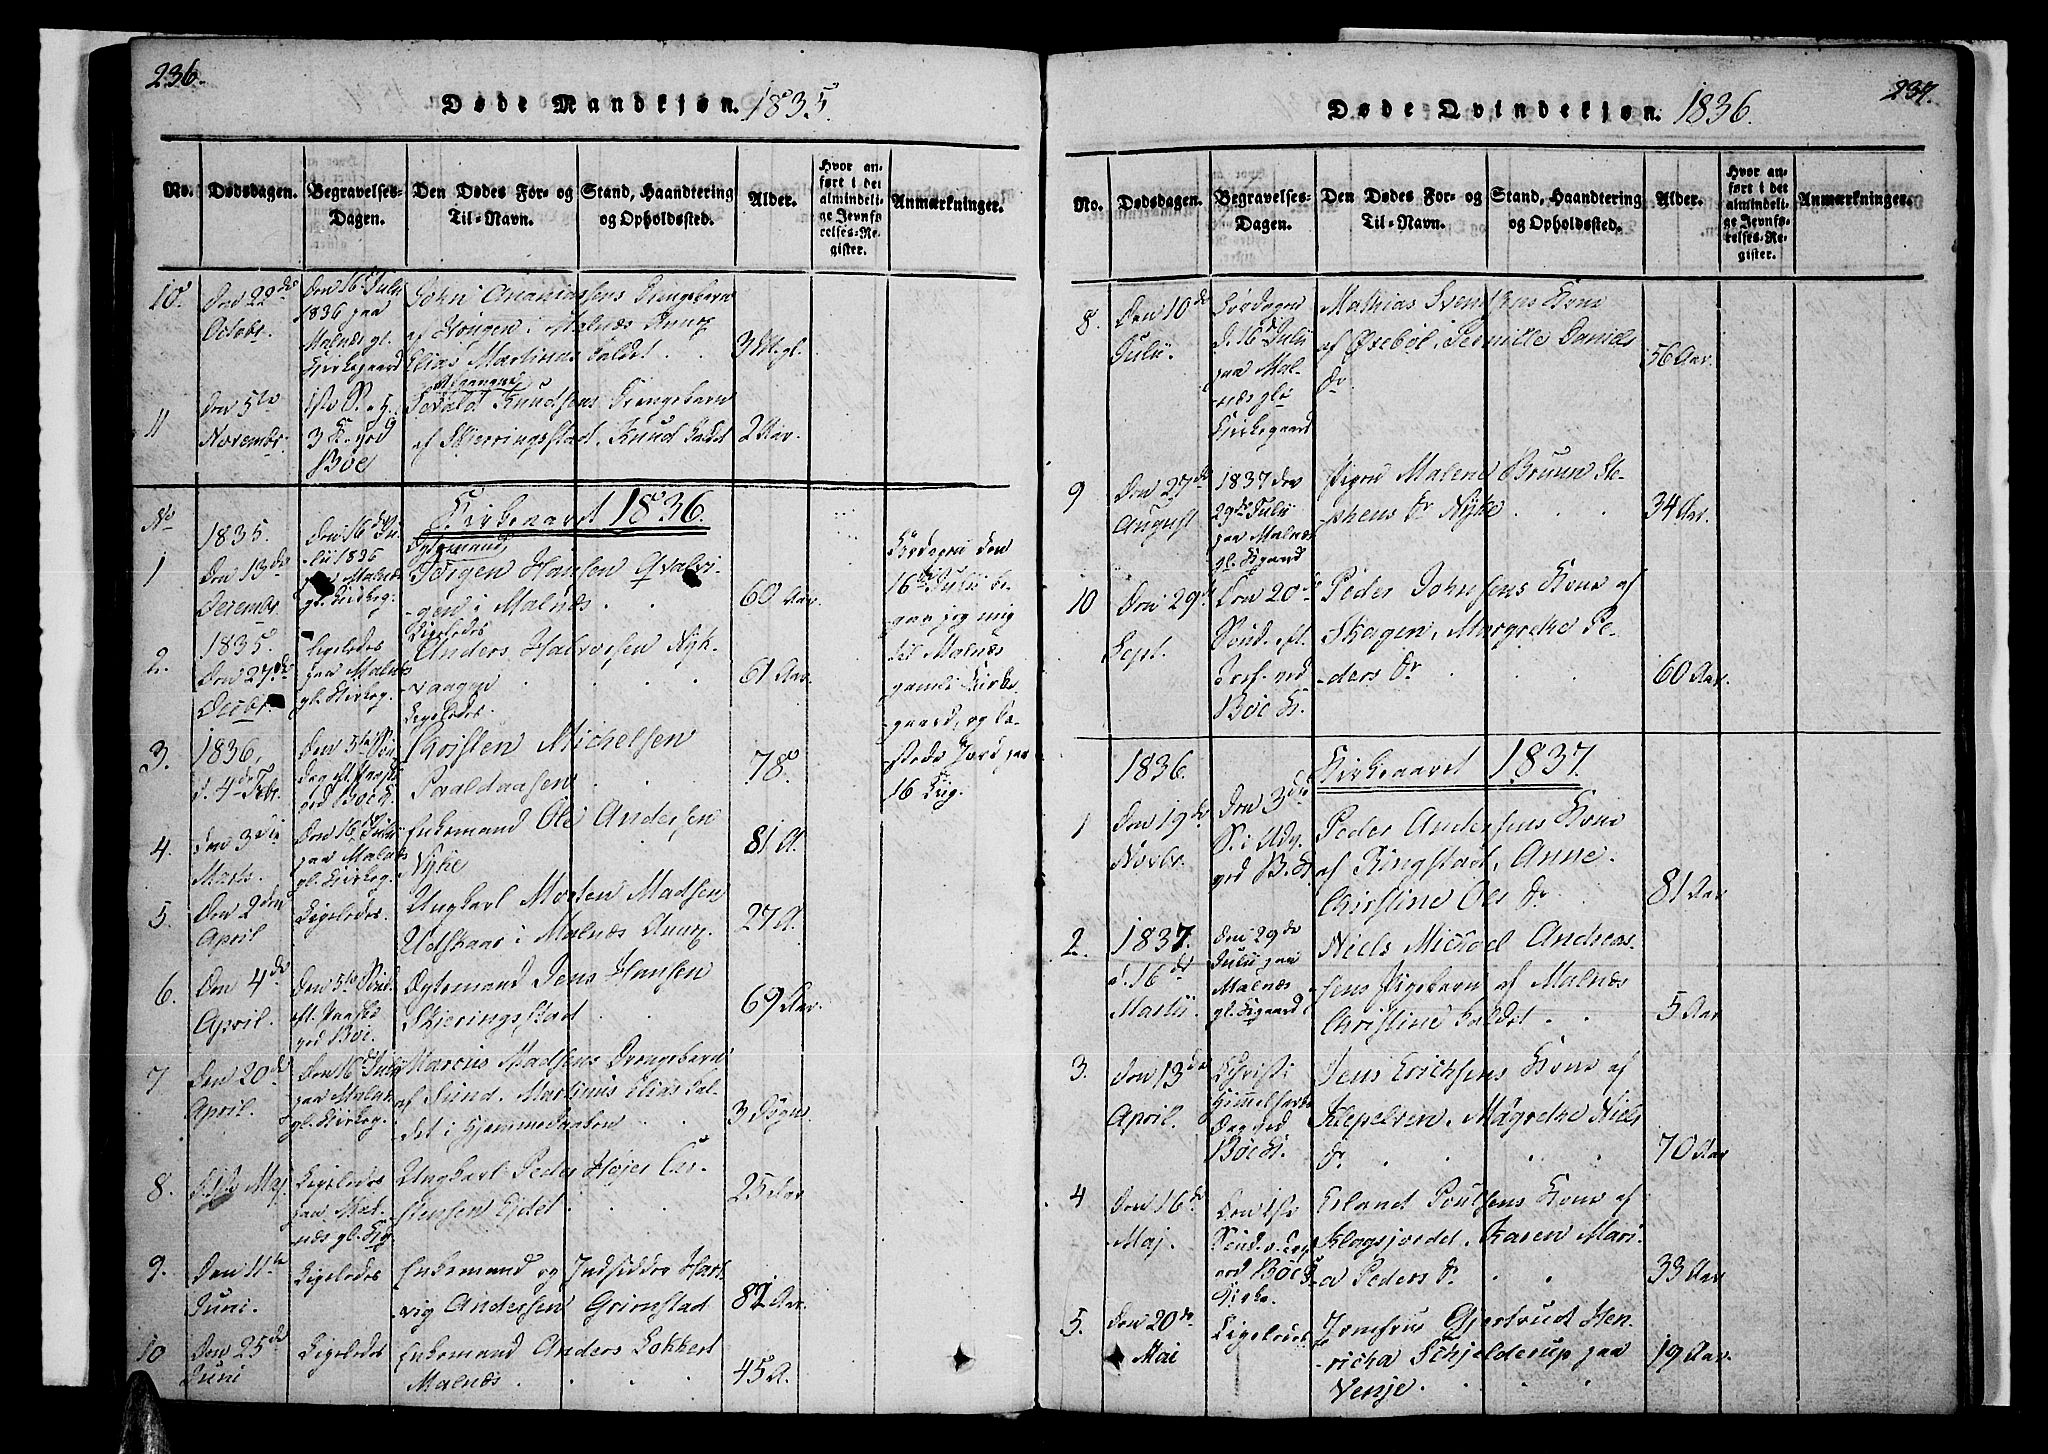 236.
Døde Mandkjøn. 1835.
No.
Dødsdagen.
Begravelses-
Dagen.
Den Dødes For- og
Til-Navn.
Stand, Haandtering
og Opholdssted.
Alder.
Hvor an-
ført i det
almindeli-
ge Jevnfø-
relses-Re-
gister.
Anmærkninger.
10.
Den 22de
Octobr.
Den 16de Julii
1836 paa
Malnæs gl.
Kirkegaard
John Ananiassens Drengebarn
af Hougen i Malnæs Annex
Elias Martinus kaldet
3 M. gl.
11
Den 5te
Novembr.
3 K. ved
Böe
Sevald Knudsens Drengebarn
af Skierringstad, Knud kaldet
2 Aar.
No
Kirkeaaret 1836.
1
1835.
Den 13de
Decembr.
Den 16de Ju-
lii 1836
paa Malnæs
gl. Kirkeg.
Hansen
i Malnæs.
60 Aar.
Løverdagen den
16de Julii be-
gav jeg mig
til Malnæs
gamle Kirke-
gaard, og ka-
stede Jord paa
16 Liig.
2.
1835.
Den 27de
Decbr.
Ligeledes
paa Malnæs
gl. Kirkeg.
Ligeledes
Anders Halvorsen Nyk-
vaagen
61 Aar.
3.
1836,
d. 4de Febr.
Den 5te Søn-
dag eft. Paaske
ved Böe K.
Ligeledes.
Christen Michelsen
78
4.
Den 3die
Marts.
Den 16de Julii
paa Malnæs
gl. Kirkeg.
Enkemand Ole Andersen
Nyke
81 A.
5
Den 2den
April
Ligeledes.
Ungkarl Morten Madsen
Uelskaar i Malnæs Annex.
27 A.
6.
Den 4de
April.
Den 5te Sønd.
eft. Paaske
ved Böe.
Ægtemand Jens Hansen
Skieringstad
69 Aar.
7
Den 20de
April.
Den 16de Julii
paa Malnæs
gl. Kirkeg.
Marcus Madsens Drengebarn
af Sund. Martinus Elias kal-
det i Hjemmedaaben
3 Døgn.
8.
Maj.
Ligeledes
paa Mal-
næs gl. Kg.
Ungkarl Peder Højer Car-
stensen Ejdet
25 Aar
9.
Den 11te
Juni.
Ligeledes
Enkemand og Indsidder Hart-
vig Andersen Grimstad
Aar.
10
Den 25de
Juni
Ligeledes
Enkemand Anders Lokkert
Malnæs
45 A.
237.
Døde Qvindekjøn. 1836.
No.
Dødsdagen.
Begravelses-
Dagen.
Den Dødes For- og
Til-Navn.
Stand, Haandtering
og Opholdssted.
Alder.
Hvor an-
ført i det
almindeli-
ge Jevnfø-
relses-Re-
gister.
Anmærkninger.
8.
Den 10de
Julii.
Løverdagen
d. 16de Julii
paa Mal-
næs gle
Kirkegaard
Mathias Svendsens Kone
af Øxebøl, Pernille Daniels
Dr.
56 Aar.
9
Den 27de
August
1837 den
29de Julii
paa Malnæs
gl. Kgaard
Pigen Malene Bruun Ste-
phens Dr. Nyke
34 Aar.
10
Den 29de
Sept.
Den 20de
Sønd. eft.
Tref. ved
Böe K.
Peder Johnsens Kone af
Skagen, Margrethe Pe-
ders Dr.
60 Aar.
Kirkeaaret 1837.
1
1836.
Den 19de
Novbr.
Den 3die
S. i Adv.
ved B. K.
Peder Andersens Kone
af Ringstad, Anne
Christine Ols Dr.
81 Aar
2.
1837.
d. 16de
Martii
Den 29de
Julii paa
Malnæs
gl. Kgaard
Niels Michael Andreas-
sens Pigebarn af Malnæs
Christine kaldet
5 Aar
3.
Den 13de
April.
Christi
Himmelfarts
Dag ved
Böe K.
Jens Erichsens Kone af
Klepelven, Magrethe Niels
Dr.
70 Aar
4
Den 16de
Maj.
Den 1ste
Sønd. e.
ved Böe
Kirke.
Erland Poulsens Kone af
Klogsjordet, Karen Mari-
a Peders Dr.
33 Aar
5.
Den 20de
Mai
Ligeledes
Jomfrue Gjertrud Hen-
richa Schjelderup paa
Venje.
19 Aar.